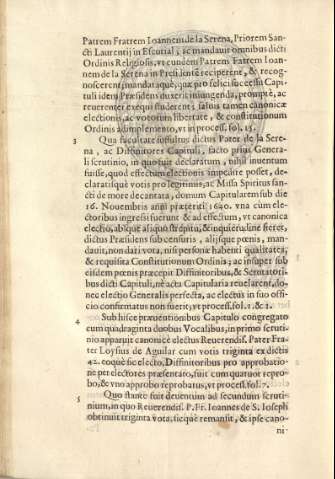 Patrem Fratrem Ioannem de la Serena, Priorem San-
cti Laurentij in Escurial, ac mandauit omnibus dicti
Ordinis Religiosis, vt eundem Patrem Fratrem Ioan-
nem de la Serena in Præsidentē reciperent, & recog-
noscerent, mandataque, quæ pro felici successu Capi-
tuli idem Præsidens duxerit iniungenda, promptè, ac
reuerenter exequi studerent; saluis tamen canonicæ
electionis, ac votorum libertate, & constitutionum
Ordinis adimplemento, vt in process. fol. 15.
3 Qua facultate suffultus dictus Pater de la Sere-
na, ac Diffinitores Capituli, facto prius Genera-
li scrutinio, in quo fuit declaratum, nihil inuentum
fuisse, quod effectum electionis impedire posset, de-
claratisque votis pro legitimis, ac Missa Spiritus san-
cti de more decantata, domum Capitularem sub die
16. Nouembris anni præteriti 1640. vna cum ele-
ctoribus ingressi fuerunt & ad effectum, vt canonica
electio, absque aliquo strepitu, & inquietudine fieret,
dictus Præsidens sub censuris, alijsque pœnis, man-
dauit, non dari vota, nisi personis habenti qualitates,
& requisita Constitutionum Ordinis; ac insuper sub
eisdem pœnis præcepit Diffinitoribus, & Scrutatori-
bus dicti Capituli, nè acta Capitularia reuelarent, do-
nec electio Generalis perfecta, ac electus in suo offi-
cio confirmatus non fuerit, vt process. fol. 1. & 2.
4 Sub hisce præuentionibus Capitulo congregato
cum quadraginta duobus Vocalibus, in primo scruti-
nio apparuit canonicè electus Reuerendiss. Pater Fra-
ter Loysius de Aguilar cum votis triginta ex dictis
42. eoque sic electo, Diffinitoribus pro approbatio-
ne per electores præsentato, fuit cum quatuor repro-
bo, & vno approbo reprobatus, vt process. fol. 7.
5 Quo stante fuit deuentum ad secundum scruti-
nium, in quo Reuerendiss. P. Fr. Ioannes de S. Ioseph
obtinuit triginta vota, sicque remansit, & ipse cano-
ni-